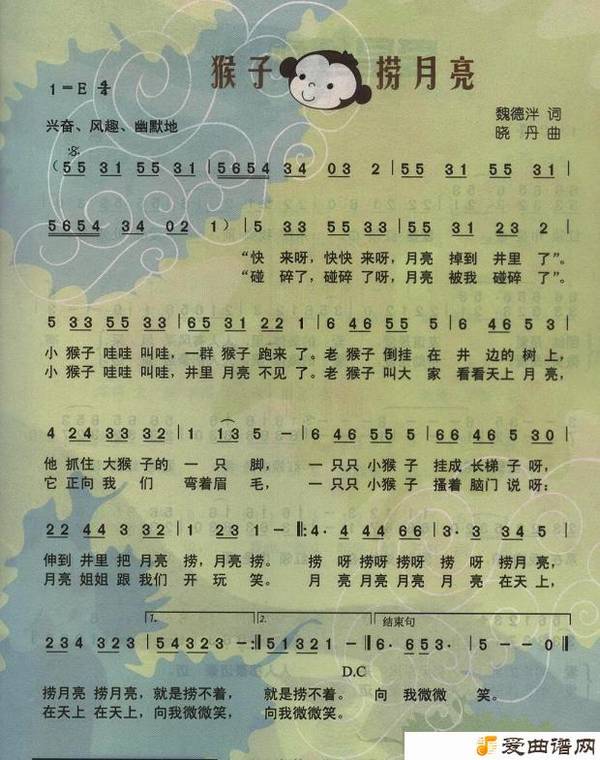 猴子 捞月亮
1=E 4/4
魏德泮 词
兴奋、风趣、幽默地
晓 丹 曲
(55 31 55 31 | 5654 34 03 2 | 55 31 55 31 |
5654 34 02 1) | 5 33 55 33 | 55 31 23 2 |
“快 来呀，快快 来呀，月亮 掉到 井里 了”。
“碰 碎了，碰碎 了呀，月亮 被我 碰碎 了”。
5 33 55 33 | 65 31 22 1 | 6 46 55 5 | 6 46 53 |
小 猴子 哇哇 叫哇，一群 猴子 跑来 了。老 猴子 倒挂 在 井 边的 树 上，
小 猴子 哇哇 叫哇，井里 月亮 不见 了。老 猴子 叫大 家 看看天上 月亮，
4 24 33 32 | 1 13 5 - | 6 46 55 5 | 66 46 5 30 |
他 抓住 大猴 子的 一 只 脚， 一 只只 小猴 子 挂成 长梯 子 呀，
它 正向 我 们 弯着 眉 毛， 一 只只 小猴 子 搔着 脑门 说 呀：
22 44 3 32 | 1 23 1 - :‖: 4· 4 44 66 | 3· 3 345 |
伸到 井里 把 月亮 捞，月亮 捞。 捞 呀 捞呀 捞呀 捞 呀 捞月 亮，
月亮 姐姐 跟 我们 开 玩 笑。 月 亮 月亮 月亮 月 亮 在天 上，
1. 2. 结束句
234 323 | 54323 - :‖ 51321 - ‖ 6· 653· | 5 - - 0 ‖
D.C
捞月亮 捞月亮，就是 捞不着， 就是 捞不着。 向 我微微 笑。
在天上 在天上，向我 微微笑， 向我 微微笑。
爱曲谱网